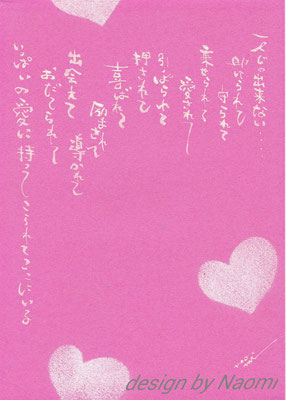 一人じゃ出来ない・・・
助けられて
守られて
乗せられて
愛されて
引っぱられて
押されて
喜ばれて
励まされて
出会えて
導かれて
おだてられて
いっぱいの愛に ここにいる
design by Naomi